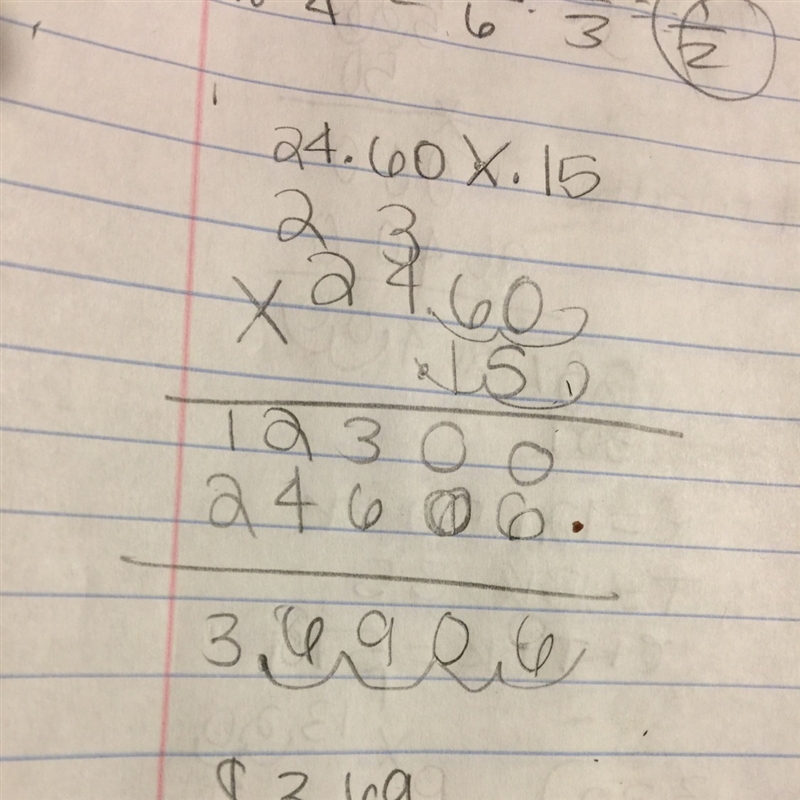 4 6 . 3 = 1/2
24.60 X .15
2 3
X 24.60
.15
12300
24606.
3.6906
$3.69